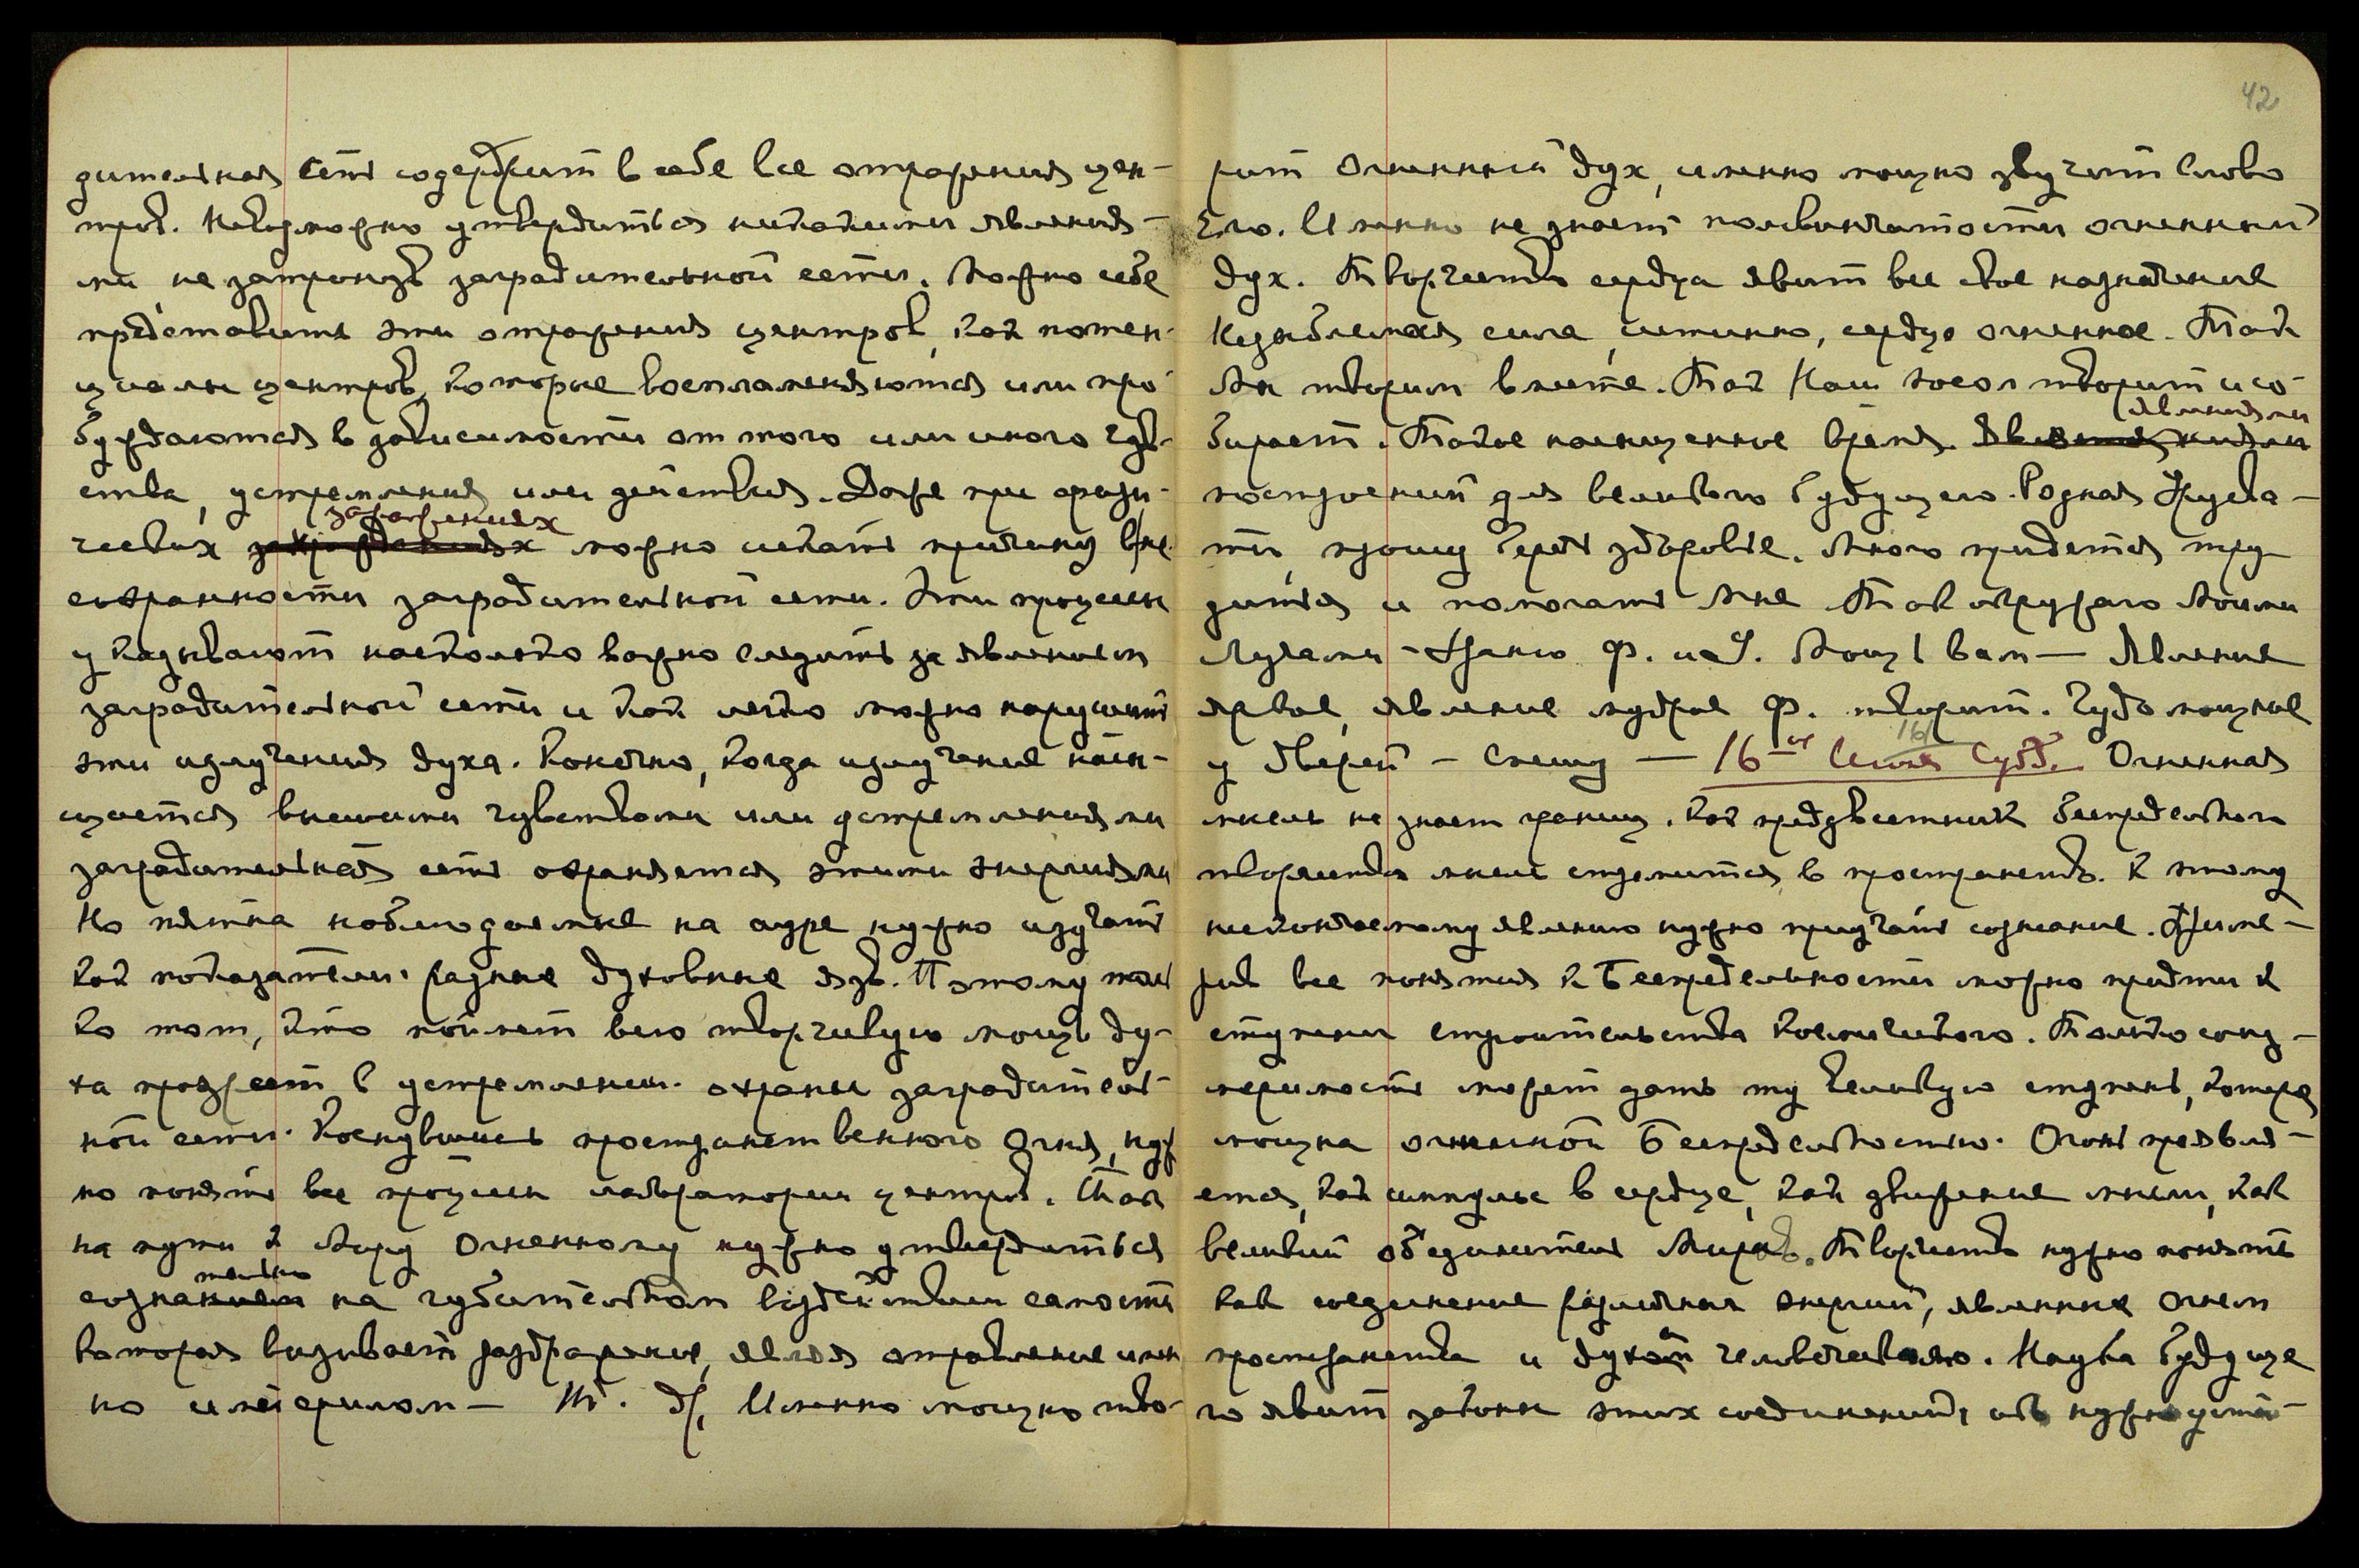 дительная сеть содержит в себе все отражения цен-
тров. Невозможно утвердиться никакими явления-
ми, не затронув заградительной сети. Можно себе
представить эти отражения центров, как потен-
циалы центров, которые воспламеняются или про-
буждаются в зависимости от того или иного чув-
ства, устремления или действия. Даже при физи-
заражениях
ческих можно искать причину в не
сохранности заградительной сети. Эти процессы
указывают насколько важно следить за явлением
заградительной сети и как легко можно нарушить
эти излучения духа. Конечно, когда излучение насы-
щается высшими чувствами или устремлениями
заградительная сеть охраняется этими энергиями
Но пятна наблюдаемые на ауре нужно изучать
как показатели разные духовные язв. Поэтому толь
ко тот, кто поймет всю творческую мощь ду-
ха преуспеет в устремлении охраны заградитель-
ной сети. Коснувшись пространственного Огня, нуж
но понять все процессы лаборатории центров. Так
на пути к Миру Огненному нужно утвердиться
тельно
созна на губительном воздействии самости
которая вызывает раздражение, являя отравление имен
но империлом — Т. д. Именно мощно тво-
42
рит Огненный дух, именно мощно звучит Слово
Его. Именно не знает половинчатости огненный
дух. Творчество сердца явит все свое назначение
Незыблемая сила, истинно, сердце огненное. Так
Мы творим вместе. Так Наш посол творит и со-
явлениями
бирает. Такое насыщенное время.
построений для великого будущего. Родная Урусва-
ти, прошу беречь здоровье. Много придется тру-
диться и помогать Мне Так окружаю Моими
Лучами — Храню Ф. и У. Мощь вам — Явление
яркое, явление мудрое Ф. творит. Чудо мощное
у дверей — Спешу — 16-ое Июня Субб. Огненная
16/
мысль не знает границ. Как предвестник беспредельного
творчества мысль стремится в пространство. К этому
неисчерпаемому явлению нужно приучать сознание. Приме-
рив все понятия к Беспредельности можно придти к
ступени строительства Космического. Только соиз-
меримость может дать ту великую ступень, которая
мощна огненной Беспредельностью. Огонь проявля-
ется, как импульс в сердце, как движение мысли, как
великий объединитель Миров. Творчество нужно понять
как соединение различных энергий, явленных Огнем
пространства и духом человеческим. Наука будуще
го явит законы этих соединений, ибо нужно утон-